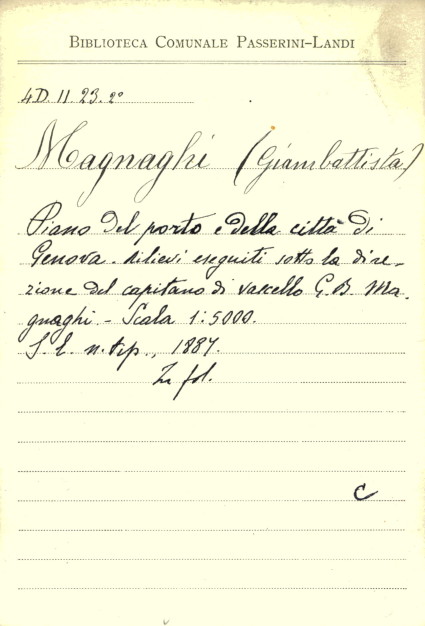 BIBLIOTECA COMUNALE PASSERINI-LANDI
4D. 11. 23. 2º
Magnaghi (Giambattista)
Piano del porto e della città di
Genova. Rilievi eseguiti sotto la dire-
zione del capitano di vascello G. B. Ma-
gnaghi. - Scala 1:5000.
S. l. n. tip., 1887.
In fol.
C